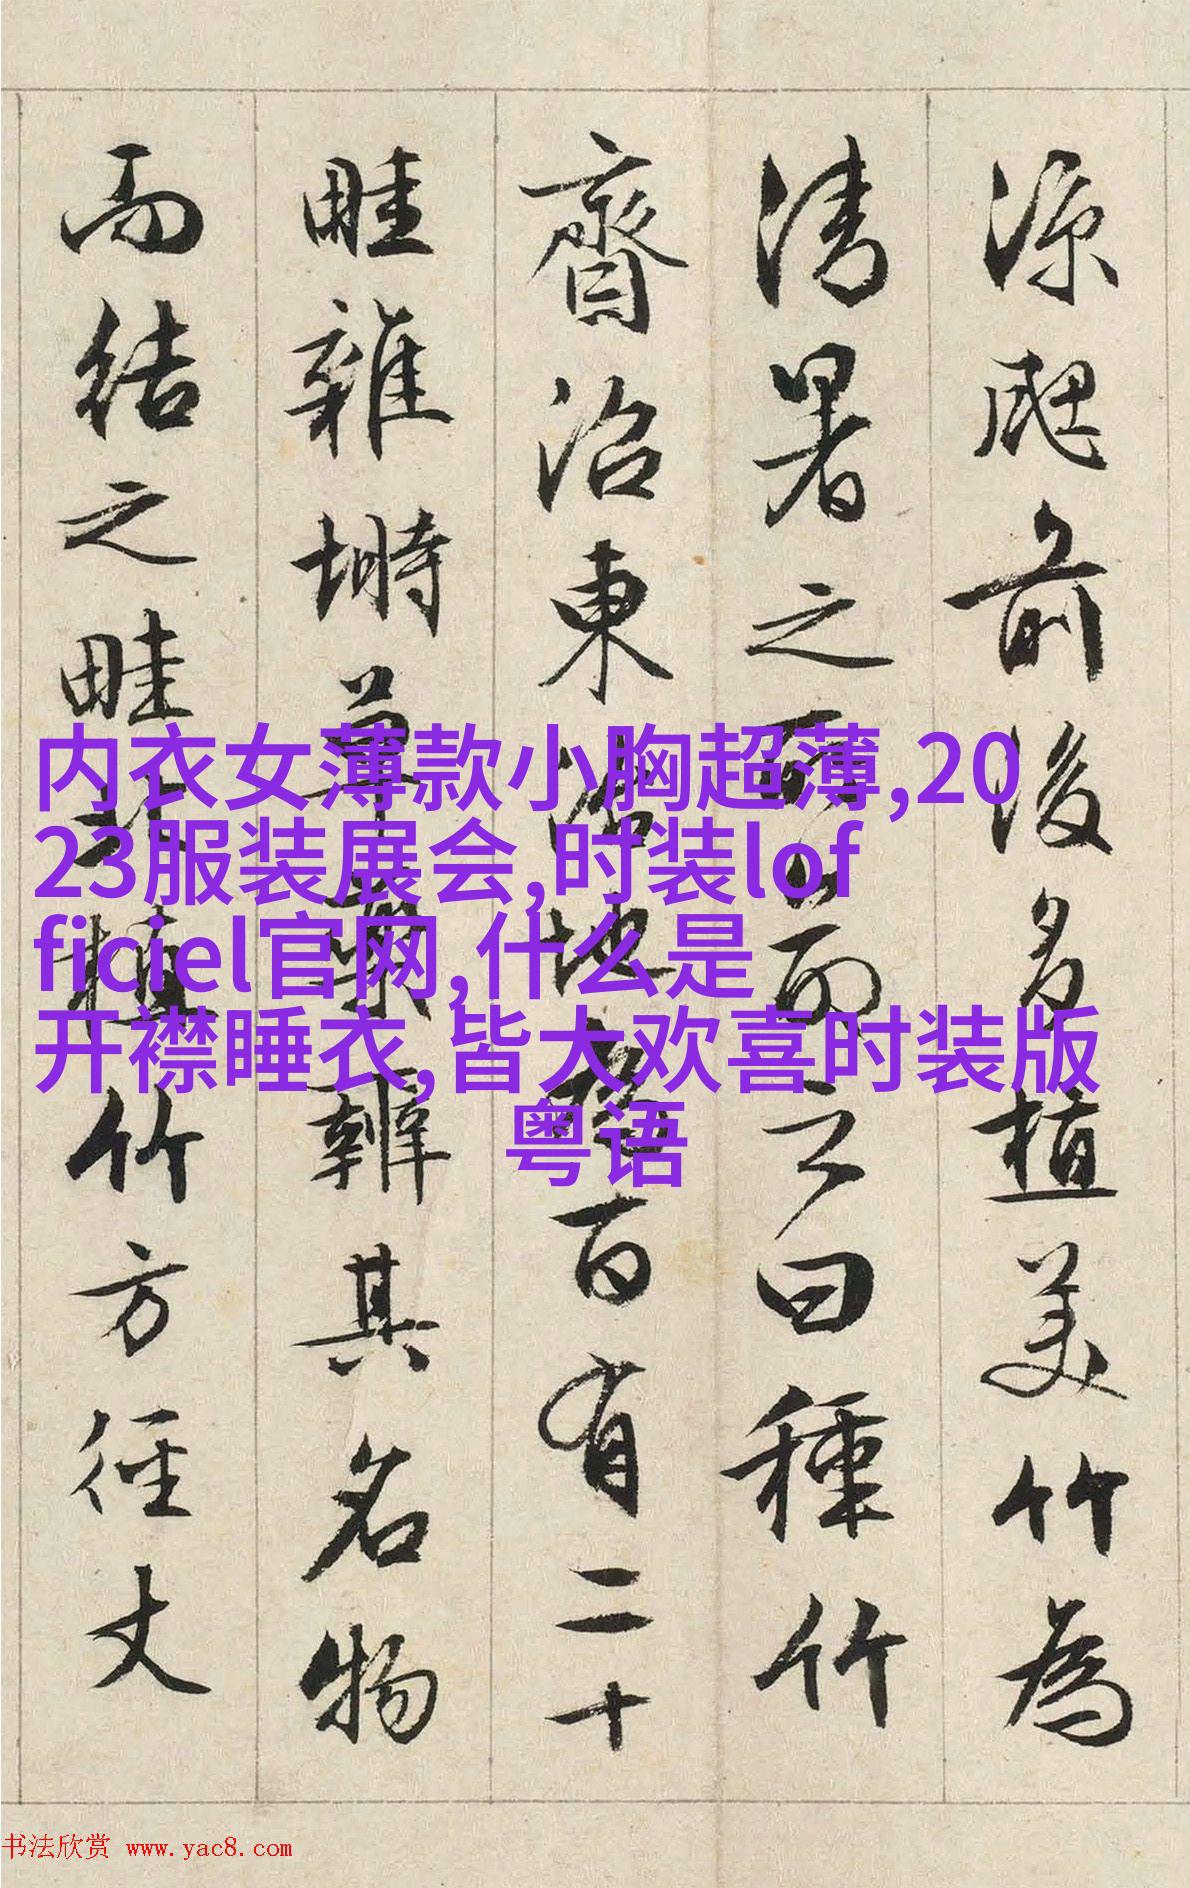 前後多植美竹為
清暑之所命之曰種竹
齋沼東治地為百有二十
畦雜草藥辨其名物
而結之畦北植竹方徑丈
内衣女薄款小胸超薄,20
23服装展会,时装lof
ficiel官网,什么是
开襟睡衣,皆大欢喜时装版
粤语
书法欣赏 www.yac8.com